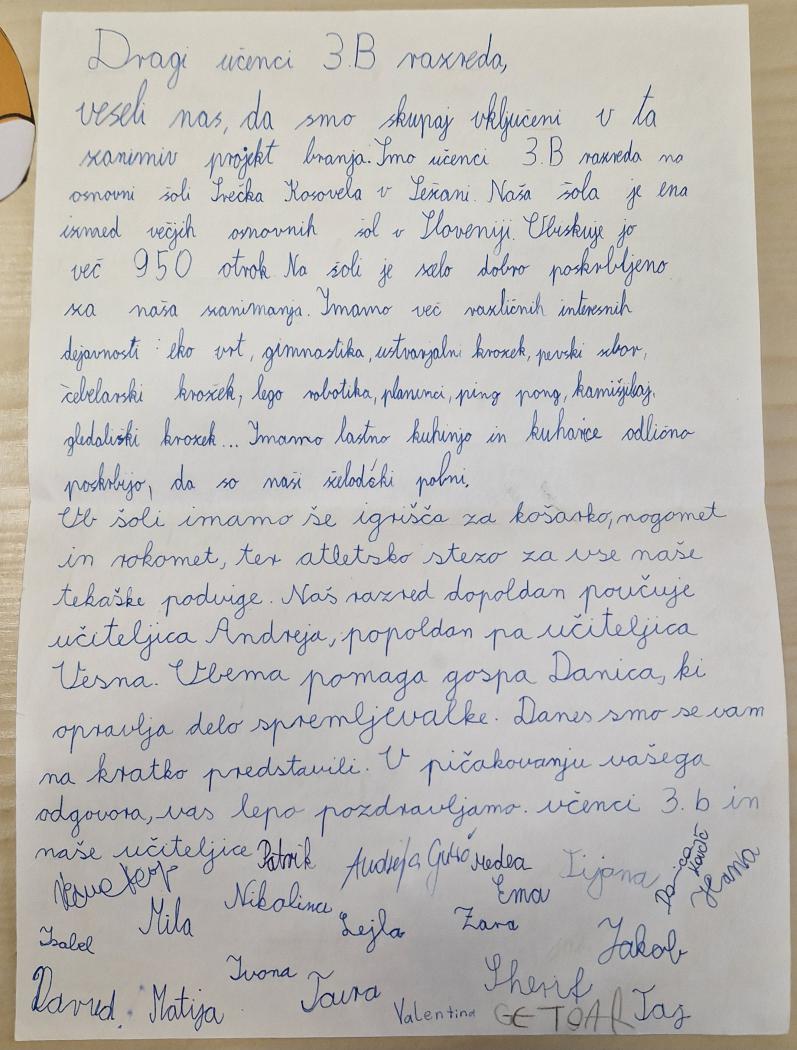 Dragi učenci 3.B razreda,
veseli nas, da smo skupaj vključeni v ta
zanimiv projekt branja. Smo učenci 3.B razreda na
osnovni šoli Srečka Kosovela v Sežani. Naša šola je ena
izmed večjih osnovnih šol v Sloveniji. Obiskuje jo
več 950 otrok. Na šoli je zelo dobro poskrbljeno
za naša zanimanja. Imamo več različnih interesnih
dejavnosti: eko vrt, gimnastika, ustvarjalni krožek, pevski zbor,
čebelarski krožek, lego robotika, planinci, ping pong, kamišibaj,
gledališki krožek... Imamo lastno kuhinjo in kuharice odlično
poskrbijo, da so naši želodčki polni.
Ob šoli imamo še igrišča za košarko, nogomet
in rokomet, ter atletsko stezo za vse naše
tekaške podvige. Naš razred dopoldan poučuje
učiteljica Andreja, popoldan pa učiteljica
Vesna. Obema pomaga gospa Danica, ki
opravlja delo spremljevalke. Danes smo se vam
na kratko predstavili. V pičakovanju vašega
odgovora, vas lepo pozdravljamo. učenci 3.b in
naše učiteljice Patrik Andreja Medea Tijana Danica Hana
Nikolina Ema
Mila Lejla Zara
Isabel Jakob
Ivona Sherif
David Matija Taira Valentina GETOAR Taj